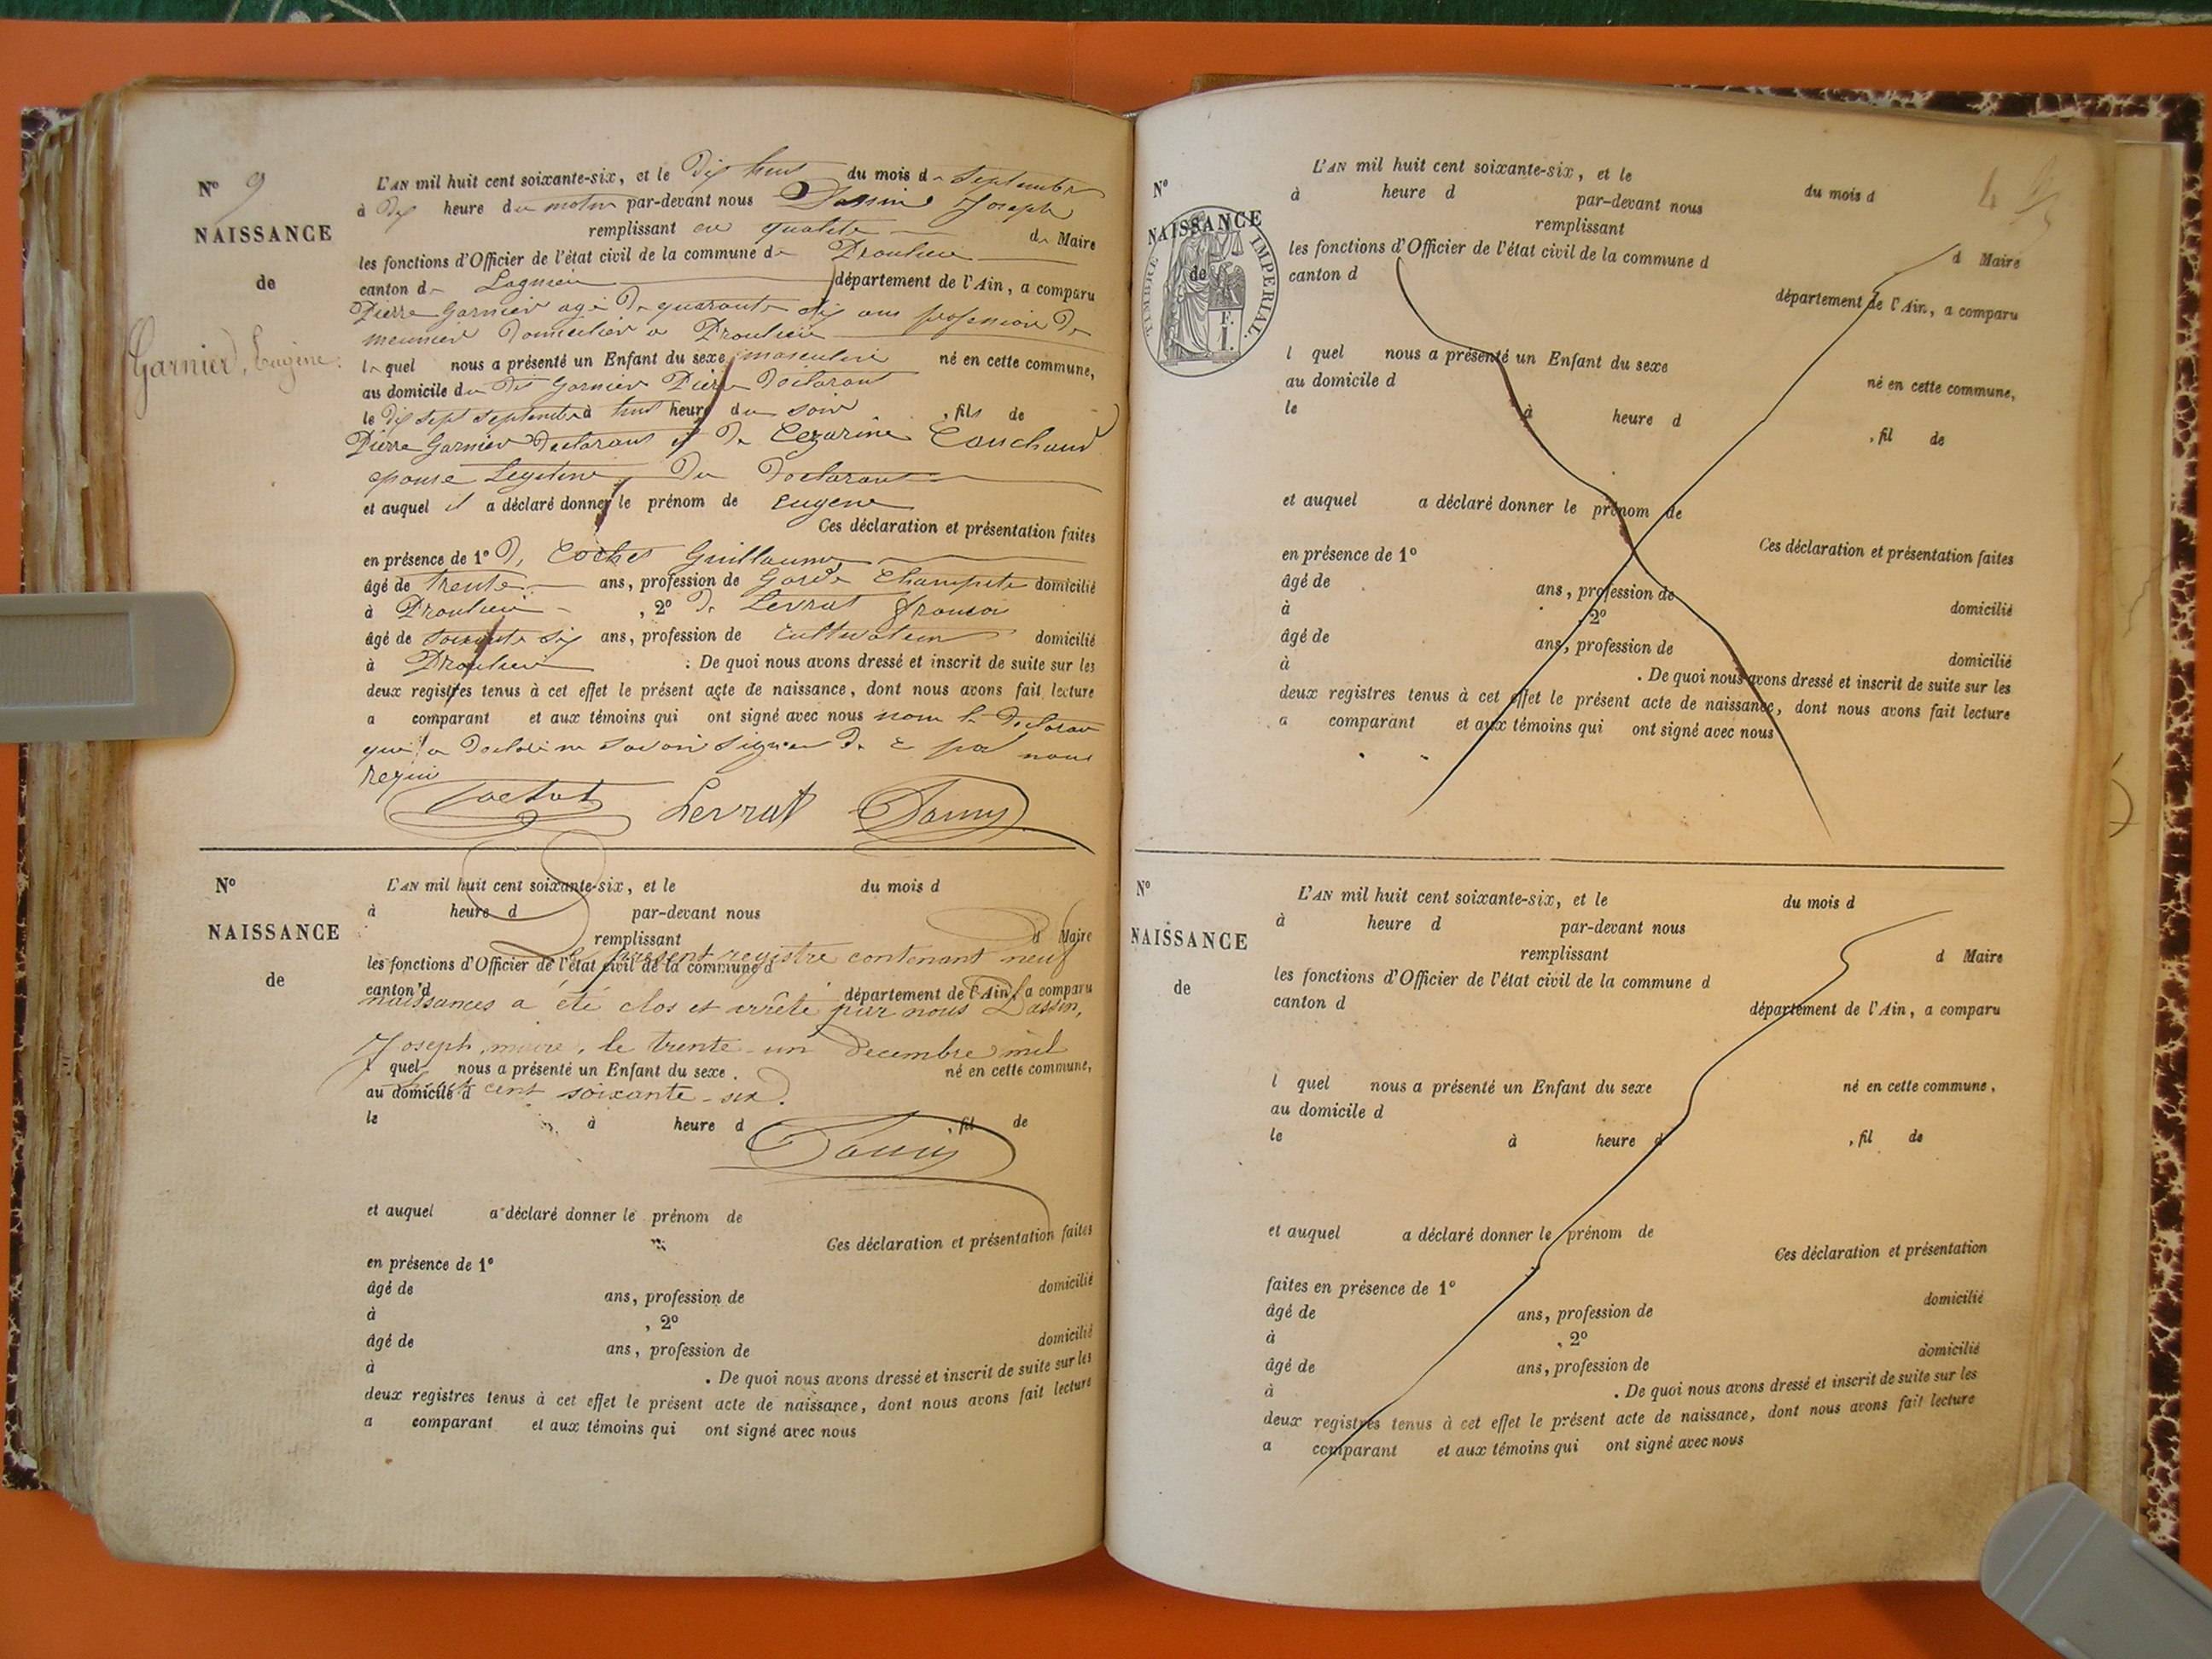 N° 9
NAISSANCE
de
Garnier, Eugène.
L'AN mil huit cent soixante-six, et le Dix huit du mois de Septembre
à Dix heure du matin par-devant nous Dassin Joseph
remplissant en qualité de Maire
les fonctions d'Officier de l'état civil de la commune de Proulieu
canton de Lagnieu département de l'Ain, a comparu
Pierre Garnier agé De quarante six ans profession De
meunier Domicilier a Proulieu
lequel nous a présenté un Enfant du sexe masculin né en cette commune,
au domicile du Dit Garnier Pierre Déclarant
le dix sept septembre à huit heure du soir, fils de
Pierre Garnier Declarant et De Cezarine Couchoud
epouse Legitime Du Declarant
et auquel il a déclaré donner le prénom de Eugene
Ces déclaration et présentation faites
en présence de 1° D, Cochet Guillaume
âgé de trente ans, profession de Garde Champete domicilié
à Proulieu, 2° De Levrat françois
âgé de soixante six ans, profession de Cultivateur domicilié
à Proulieu. De quoi nous avons dressé et inscrit de suite sur les
deux registres tenus à cet effet le présent acte de naissance, dont nous avons fait lecture
a comparant et aux témoins qui ont signé avec nous non le Declarant
qui a Declaré ne savoir signer De ce par nous
requi
Cochet Levrat Dassin
N°
NAISSANCE
de
L'AN mil huit cent soixante-six, et le du mois d
à heure d par-devant nous
remplissant d Maire
Le présent registre contenant neuf
les fonctions d'Officier de l'état civil de la commune d
canton d département de l'Ain, a comparu
naissances a été clos et arrêté par nous Dassin,
Joseph, maire, le trente-un Decembre mil
l quel nous a présenté un Enfant du sexe né en cette commune,
au domicile d
huit cent soixante-six.
le à heure d, fil de
Dassin
et auquel a déclaré donner le prénom de
Ces déclaration et présentation faites
en présence de 1°
âgé de ans, profession de domicilié
à, 2°
âgé de ans, profession de domicilié
à. De quoi nous avons dressé et inscrit de suite sur les
deux registres tenus à cet effet le présent acte de naissance, dont nous avons fait lecture
a comparant et aux témoins qui ont signé avec nous
N°
NAISSANCE
de
TIMBRE IMPERIAL.
F.
1.
L'AN mil huit cent soixante-six, et le du mois d
à heure d par-devant nous
remplissant d Maire
les fonctions d'Officier de l'état civil de la commune d
canton d département de l'Ain, a comparu
l quel nous a présenté un Enfant du sexe né en cette commune,
au domicile d
le à heure d, fil de
et auquel a déclaré donner le prénom de
Ces déclaration et présentation faites
en présence de 1°
âgé de ans, profession de domicilié
à, 2°
âgé de ans, profession de domicilié
à. De quoi nous avons dressé et inscrit de suite sur les
deux registres tenus à cet effet le présent acte de naissance, dont nous avons fait lecture
a comparant et aux témoins qui ont signé avec nous
N°
NAISSANCE
de
L'AN mil huit cent soixante-six, et le du mois d
à heure d par-devant nous
remplissant d Maire
les fonctions d'Officier de l'état civil de la commune d
canton d département de l'Ain, a comparu
l quel nous a présenté un Enfant du sexe né en cette commune,
au domicile d
le à heure d, fil de
et auquel a déclaré donner le prénom de
Ces déclaration et présentation
faites en présence de 1°
âgé de ans, profession de domicilié
à, 2°
âgé de ans, profession de domicilié
à. De quoi nous avons dressé et inscrit de suite sur les
deux registres tenus à cet effet le présent acte de naissance, dont nous avons fait lecture
a comparant et aux témoins qui ont signé avec nous